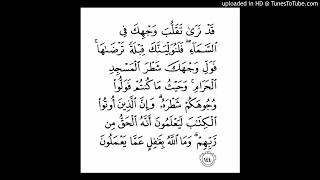 uploaded in HD @ TunesToTube.com
قَدْ نَرَىٰ تَقَلُّبَ وَجْهِكَ فِي
السَّمَاءِ ۖ فَلَنُوَلِّيَنَّكَ قِبْلَةً تَرْضَىٰهَا ۚ
فَوَلِّ وَجْهَكَ شَطْرَ الْمَسْجِدِ
الْحَرَامِ ۚ وَحَيْثُ مَا كُنتُمْ فَوَلُّوا
وُجُوهَكُمْ شَطْرَهُ ۗ وَإِنَّ الَّذِينَ أُوتُوا
الْكِتَٰبَ لَيَعْلَمُونَ أَنَّهُ الْحَقُّ مِن
رَّبِّهِمْ ۗ وَمَا اللَّهُ بِغَٰفِلٍ عَمَّا يَعْمَلُونَ